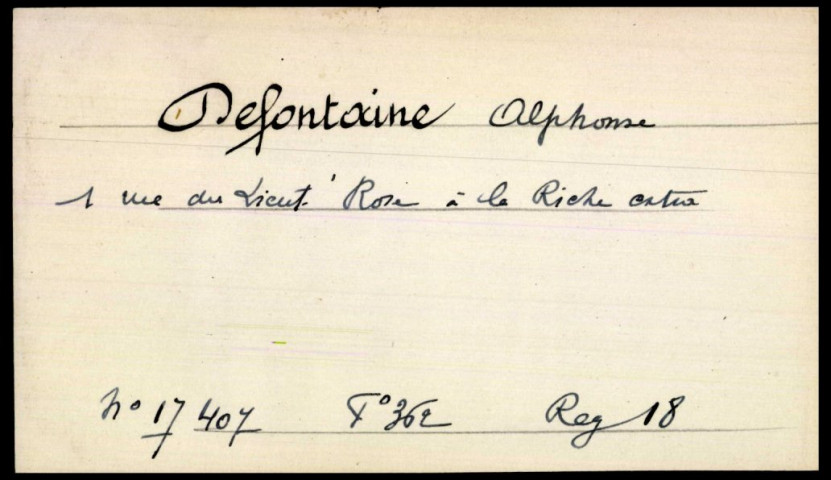 Defontaine Alphonse
1 rue du Lieut. Rose à la Riche extra
No 17 407 Fo 362 Reg 18